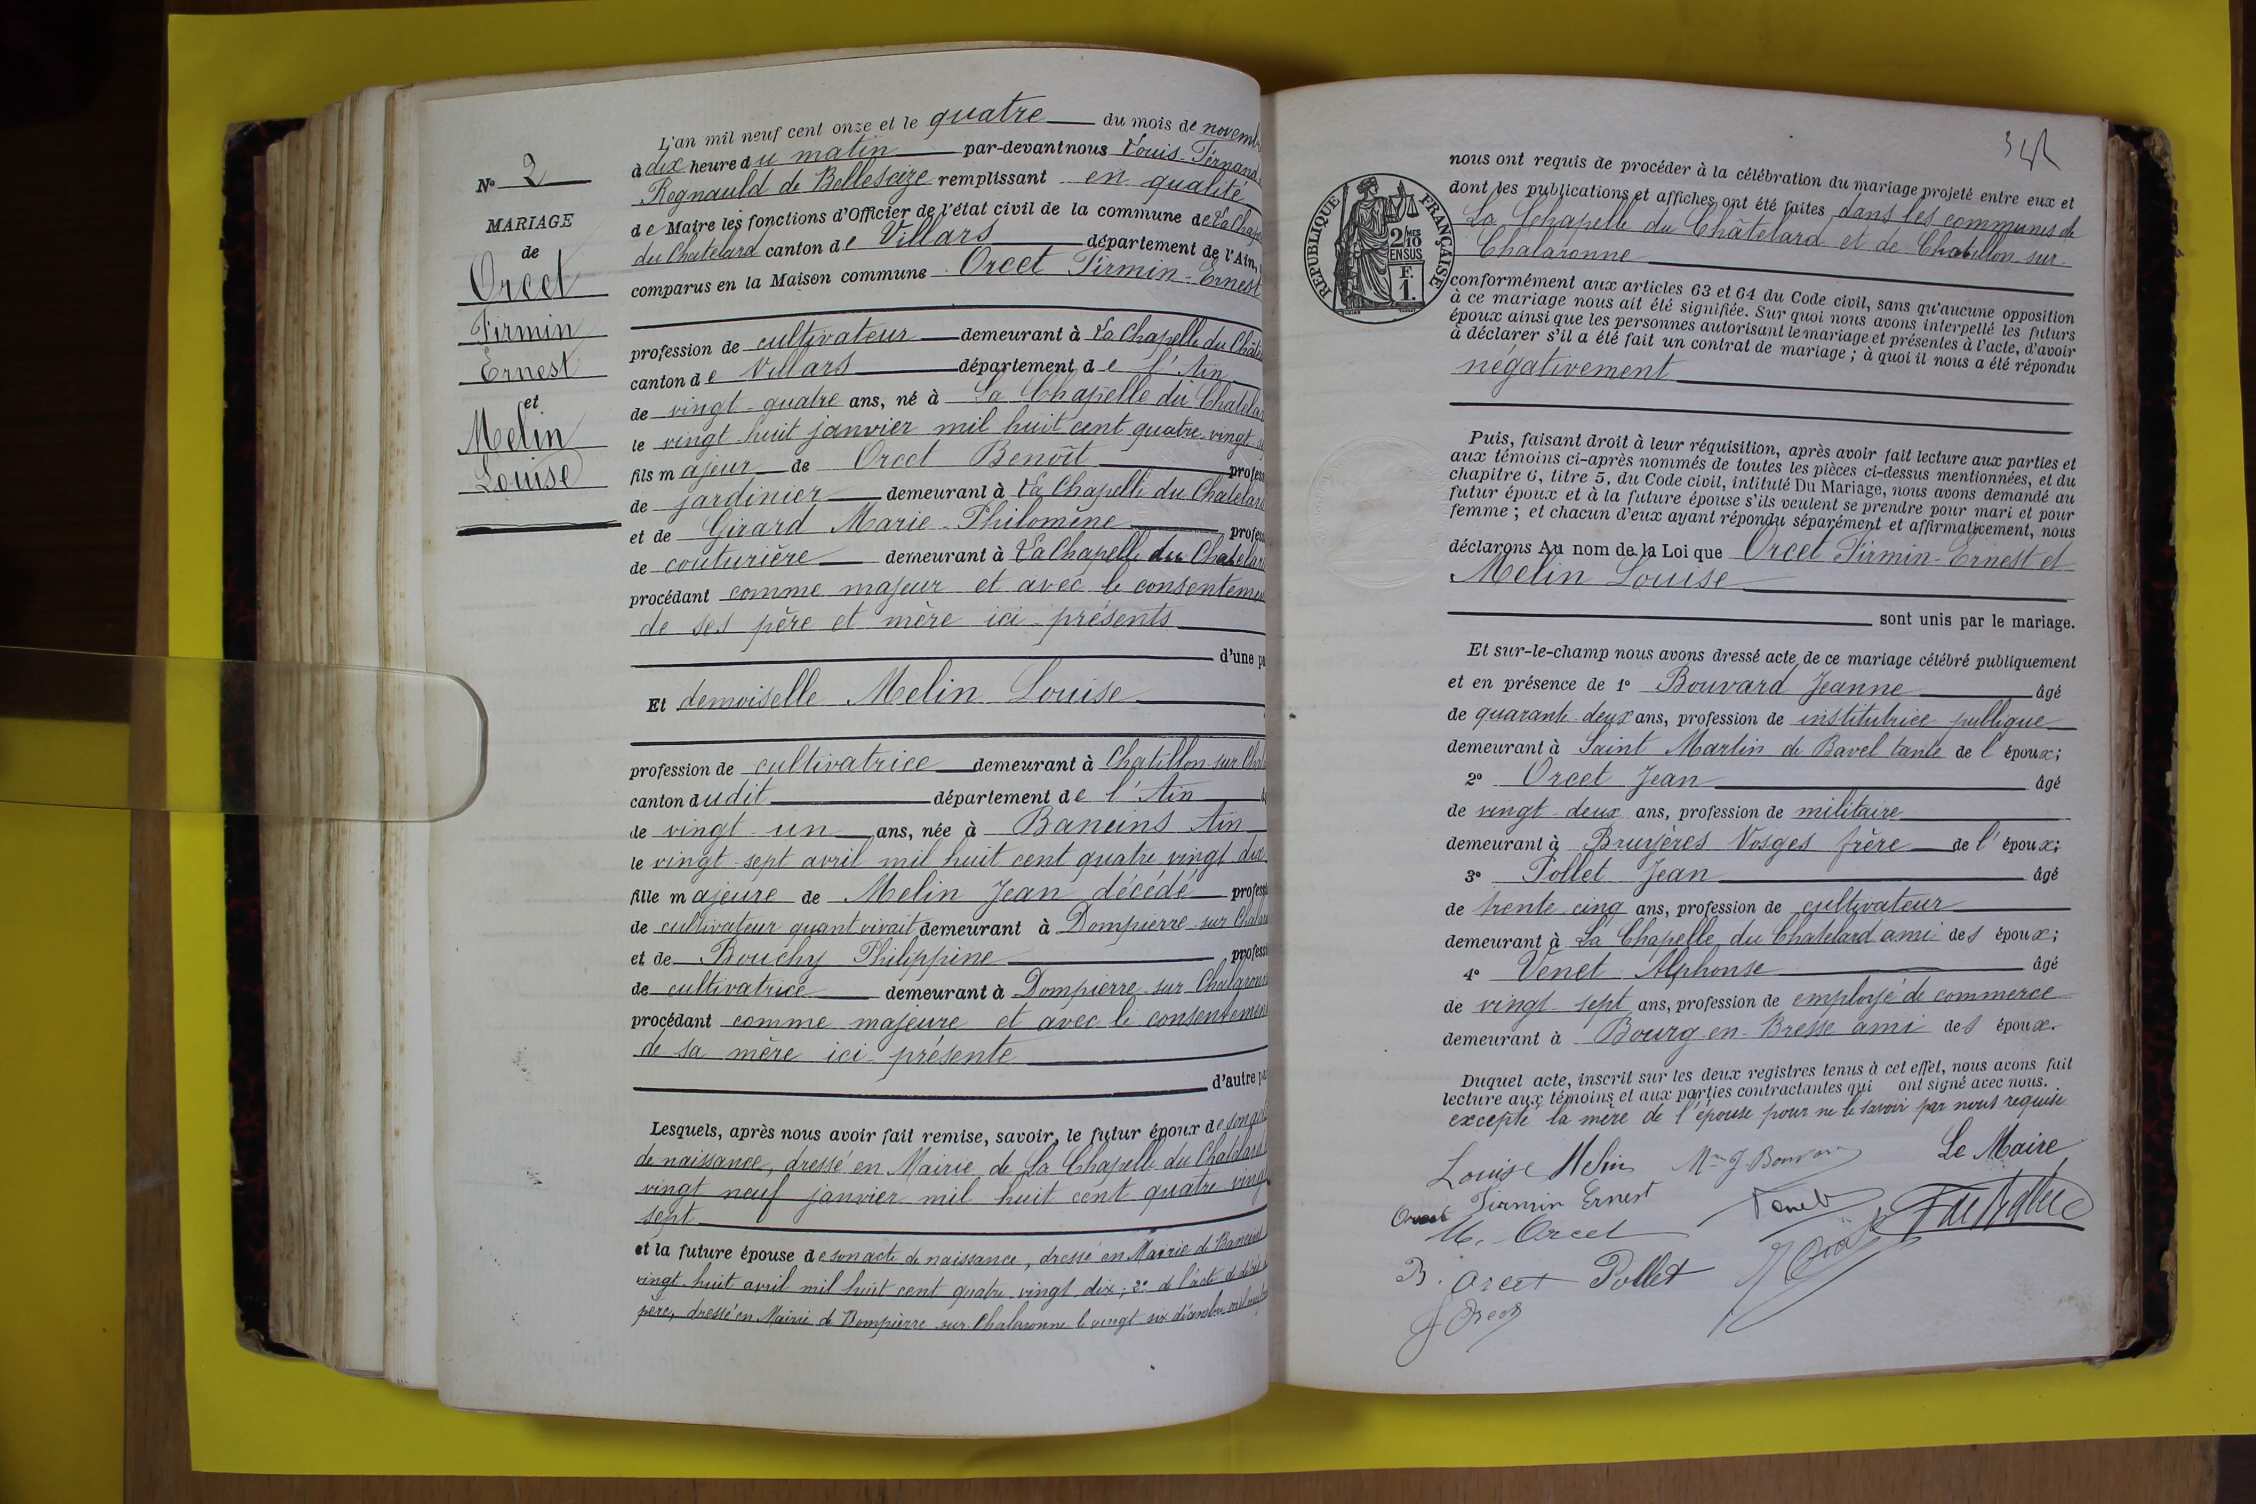 N° 2
MARIAGE
de
Orcet
Firmin
Ernest
et
Melin
Louise
L'an mil neuf cent onze et le quatre du mois de novemb
à dix heure du matin par-devant nous Louis-Fernand
Regnauld de Bellescize remplissant en qualité
de Maire les fonctions d'Officier de l'état civil de la commune de La Chap
du Chatelard canton de Villars département de l'Ain,
comparus en la Maison commune Orcet Firmin-Ernest
profession de cultivateur demeurant à La Chapelle du Châte
canton de Villars département de l'Ain
de vingt-quatre ans, né à La Chapelle du Chatelar
le vingt huit janvier mil huit cent quatre-vingt
fils majeur de Orcet Benoît profess
de jardinier demeurant à La Chapelle du Chatelard
et de Girard Marie-Philomène profess
de couturière demeurant à La Chapelle du Chatelard
procédant comme majeur et avec le consenteme
de ses père et mère ici présents
d'une pa
Et demoiselle Melin Louise
profession de cultivatrice demeurant à Chatillon-sur-Chal
canton dudit département de l'Ain
de vingt-un ans, née à Baneins Ain
le vingt-sept avril mil huit cent quatre vingt dix
fille majeure de Melin Jean décédé profess
de cultivateur quant vivait demeurant à Dompierre-sur-Chalar
et de Bouchy Philippine profess
de cultivatrice demeurant à Dompierre-sur-Chalaron
procédant comme majeure et avec le consentemen
de sa mère ici présente
d'autre pa
Lesquels, après nous avoir fait remise, savoir, le futur époux de son ac
de naissance, dressé en Mairie de La Chapelle du Chatelard
vingt neuf janvier mil huit cent quatre vingt
sept
et la future épouse de son acte de naissance, dressé en Mairie de Baneins
vingt-huit avril mil huit cent quatre-vingt dix; 2° de l'acte de décès
père, dressé en Mairie de Dompierre-sur-Chalaronne le vingt six décembre
RÉPUBLIQUE FRANÇAISE
2/10 MES
EN SUS
F.
1.
nous ont requis de procéder à la célébration du mariage projeté entre eux et
dont les publications et affiches ont été faites dans les communes de
La Chapelle du Châtelard et de Chatillon-sur-
Chalaronne
conformément aux articles 63 et 64 du Code civil, sans qu'aucune opposition
à ce mariage nous ait été signifiée. Sur quoi nous avons interpellé les futurs
époux ainsi que les personnes autorisant le mariage et présentes à l'acte, d'avoir
à déclarer s'il a été fait un contrat de mariage; à quoi il nous a été répondu
négativement
Puis, faisant droit à leur réquisition, après avoir fait lecture aux parties et
aux témoins ci-après nommés de toutes les pièces ci-dessus mentionnées, et du
chapitre 6, titre 5, du Code civil, intitulé Du Mariage, nous avons demandé au
futur époux et à la future épouse s'ils veulent se prendre pour mari et pour
femme; et chacun d'eux ayant répondu séparément et affirmativement, nous
déclarons Au nom de la Loi que Orcet Firmin-Ernest et
Melin Louise
sont unis par le mariage.
Et sur-le-champ nous avons dressé acte de ce mariage célébré publiquement
et en présence de 1° Bouvard Jeanne âgé
de quarante-deux ans, profession de institutrice publique
demeurant à Saint Martin de Bavel tante de l'époux;
2° Orcet Jean âgé
de vingt deux ans, profession de militaire
demeurant à Bruyères Vosges frère de l'époux;
3° Pollet Jean âgé
de trente cinq ans, profession de cultivateur
demeurant à La Chapelle du Chatelard ami des époux;
4° Venet Alphonse âgé
de vingt sept ans, profession de employé de commerce
demeurant à Bourg-en-Bresse ami des époux.
Duquel acte, inscrit sur les deux registres tenus à cet effet, nous avons fait
lecture aux témoins et aux parties contractantes qui ont signé avec nous.
excepté la mère de l'épouse pour ne le savoir par nous requise
Louise Melin Mme J. Bouvard Le Maire
Orcet Firmin Ernest Venet
M. Orcet
B. Orcet Pollet
J Orcet